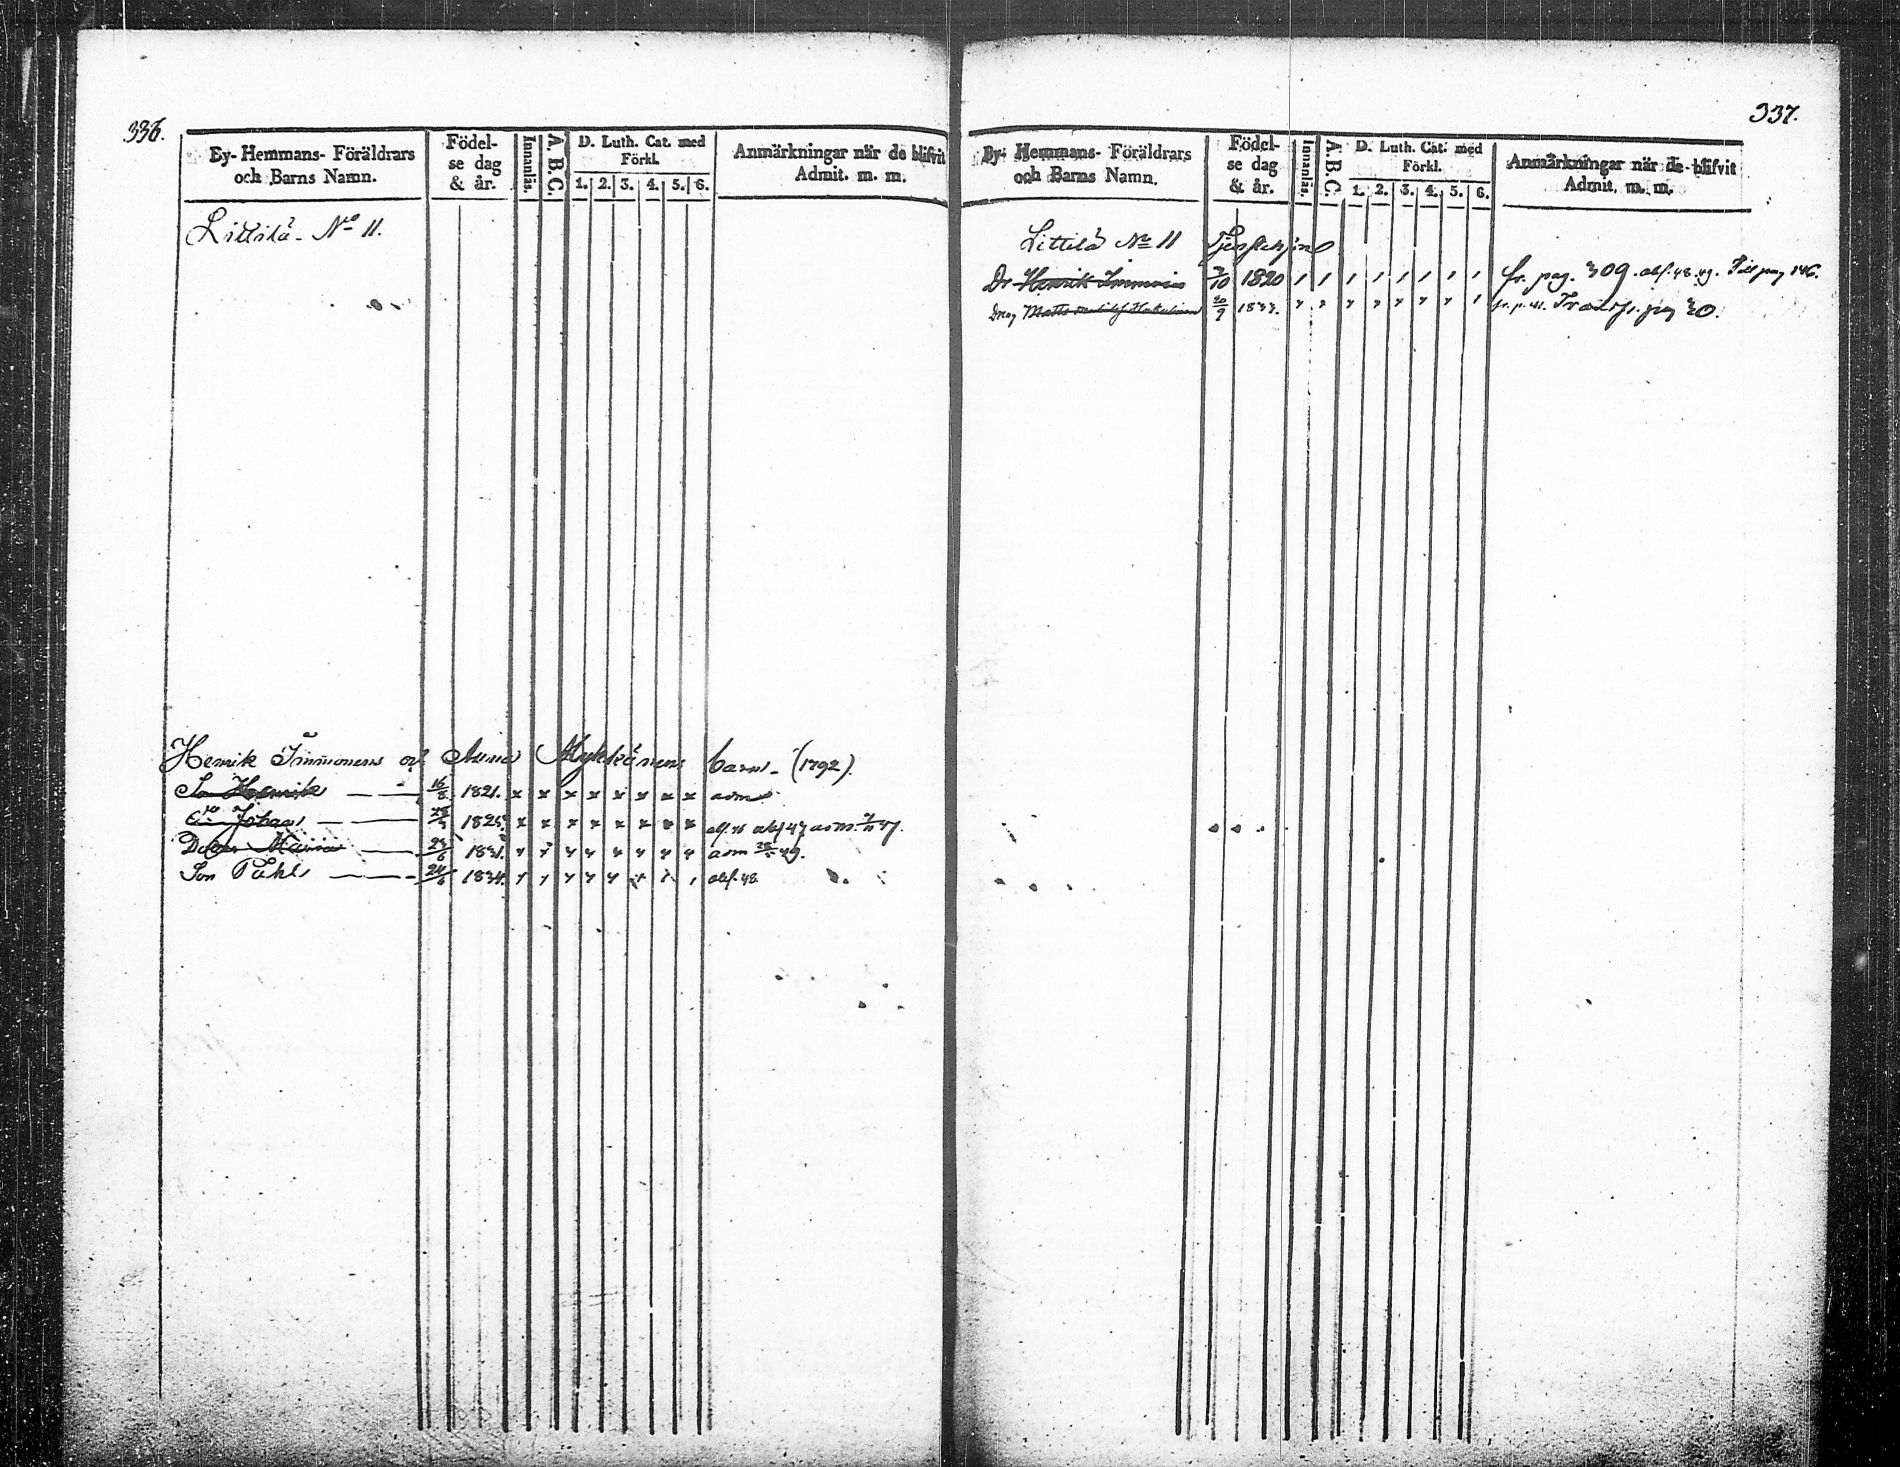 336.
By- Hemmans- Föräldrars och Barns Namn.
Födelse dag & år.
Innanläs.
A. B. C.
D. Luth. Cat. med Förkl.
1. 2. 3. 4. 5. 6.
Anmärkningar när de blifvit Admit. m. m.
Littilä - No 11.
Henrik Immonens och Anna Mykkänens barn - (1792).
Son Henrik 16/8 1821. x x x x x x x x adm
do Johan 1825. x x x x x x x x abf 47 adm. 47.
Dotter Maria 23/6 1831. adm 49.
Son Påhl 24/6 1834. abf. 48
337.
By- Hemmans- Föräldrars och Barns Namn.
Födelse dag & år.
Innanläs.
A. B. C.
D. Luth. Cat. med Förkl.
1. 2. 3. 4. 5. 6.
Anmärkningar när de blifvit Admit. m. m.
Littilä No 11 Tjenstehjon
Dr Henrik Immonen 1820 / / / / / / / / fr. pag. 309. abf. 48. 49. Till pag 146.
Dreng Matts 20/9 1833. Transp. pag 30.